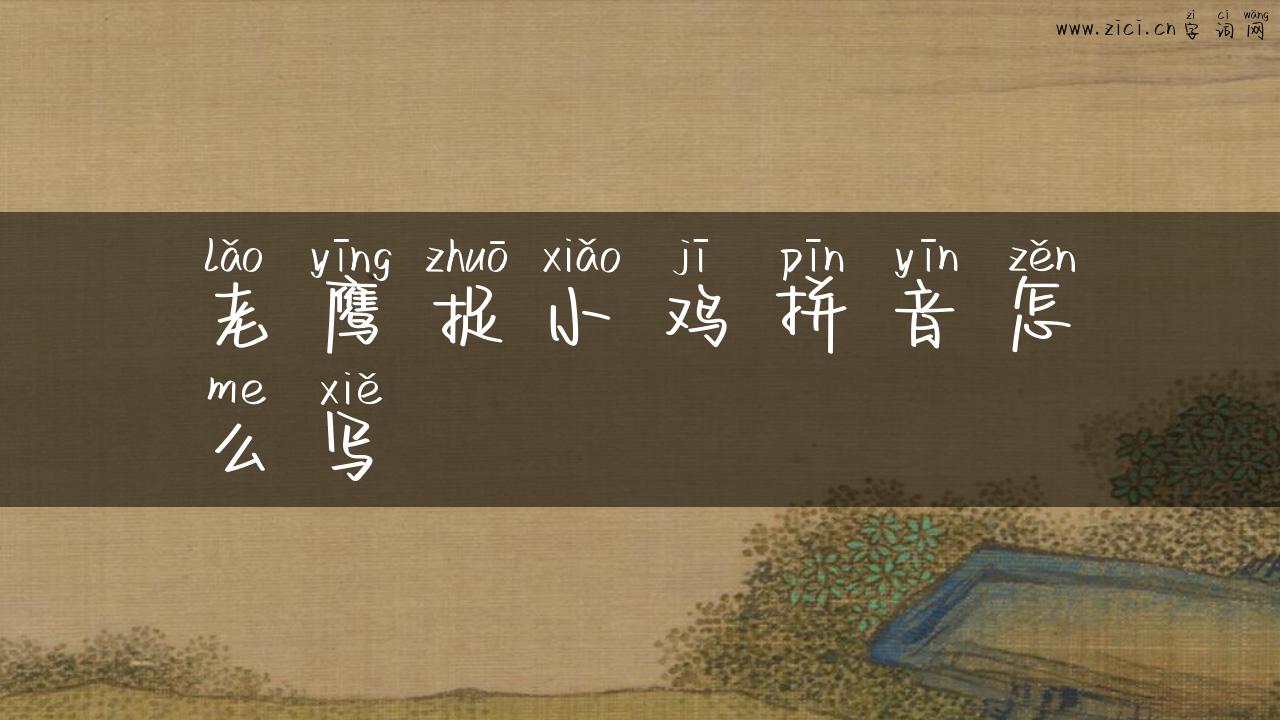 zì cí wǎng
www.zici.cn 字词网
lǎo yīng zhuō xiǎo jī pīn yīn zěn
老鹰捉小鸡拼音怎
me xiě
么写